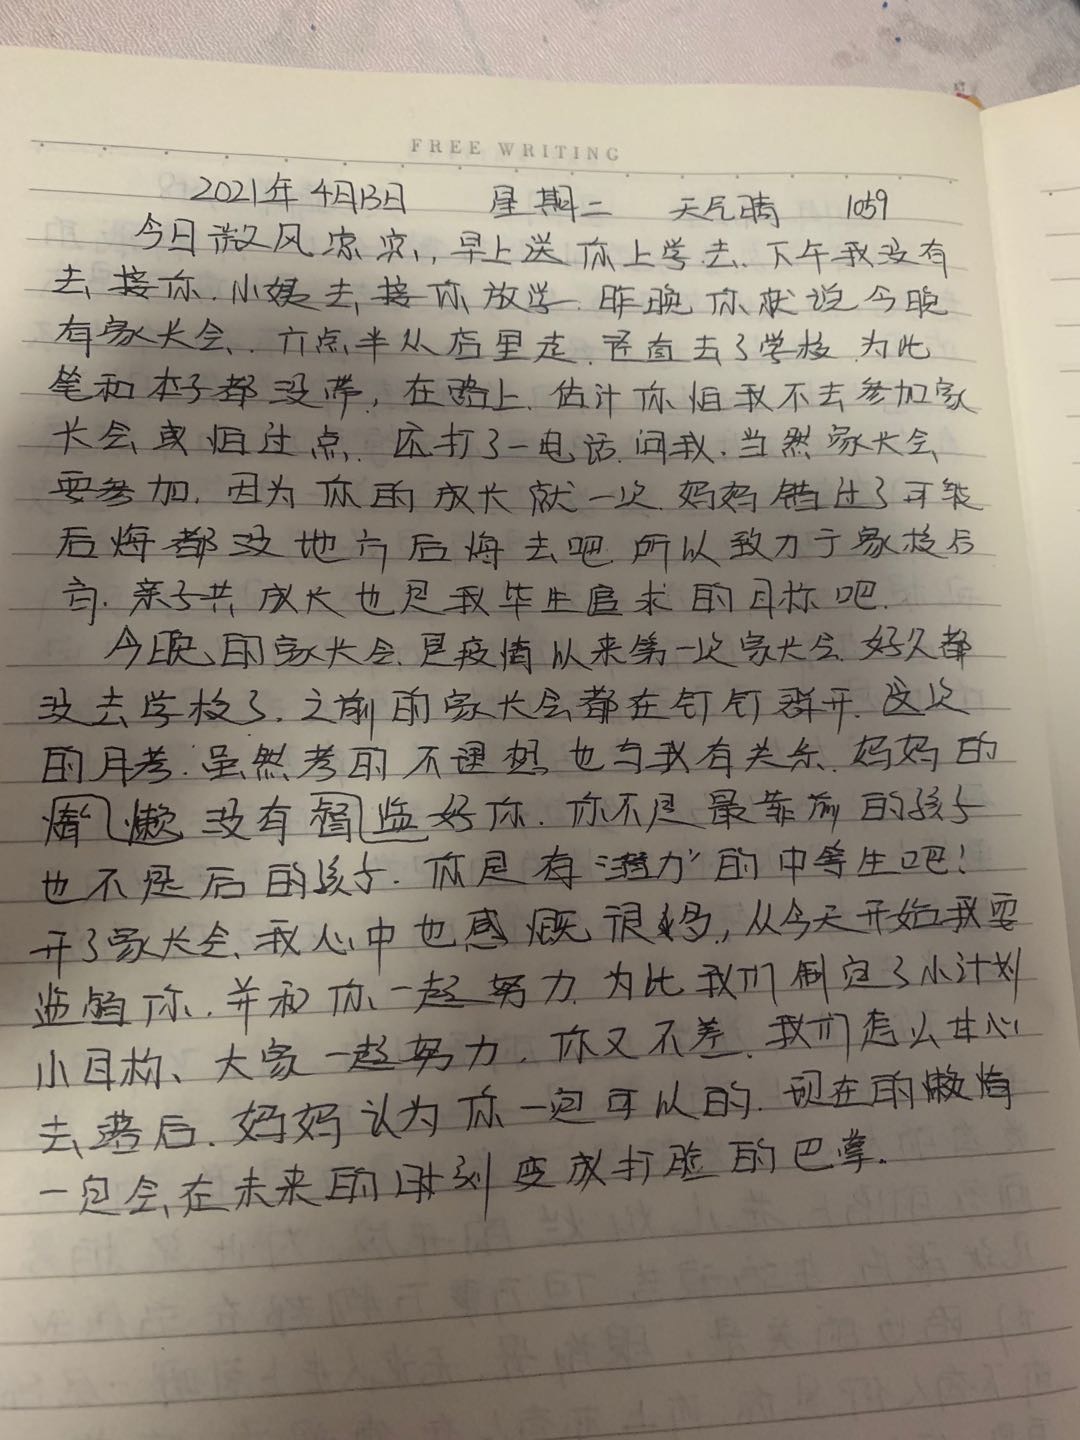 FREE WRITING
2021年4月13日 星期二 天气晴 1059
今日微风凉凉,早上送你上学去.下午我没有
去接你.小姨去接你放学.昨晚你就说今晚
有家长会.六点半从店里走.径直去了学校.为此
笔和本子都没带,在路上.估计你怕我不去参加家
长会或怕过点.还打了一电话问我.当然家长会
要参加.因为你的成长就一次.妈妈错过了可能
后悔都没地方后悔去吧.所以致力于家校后
育.亲子共成长也是我毕生追求的目标吧.
今晚的家长会.是疫情以来第一次家长会.好久都
没去学校了.之前的家长会都在钉钉群开.这次
的月考.虽然考的不理想.也与我有关系.妈妈的
惰懒没有督监好你.你不是最靠前的孩子
也不是后的孩子.你是有“潜力”的中等生吧!
开了家长会、我心中也感慨很多,从今天开始我要
监督你.并和你一起努力.为此我们制定了小计划
小目标、大家一起努力.你又不差.我们怎么甘心
去落后.妈妈认为你一定可以的.现在的懒惰
一定会在未来的时刻变成打脸的巴掌.